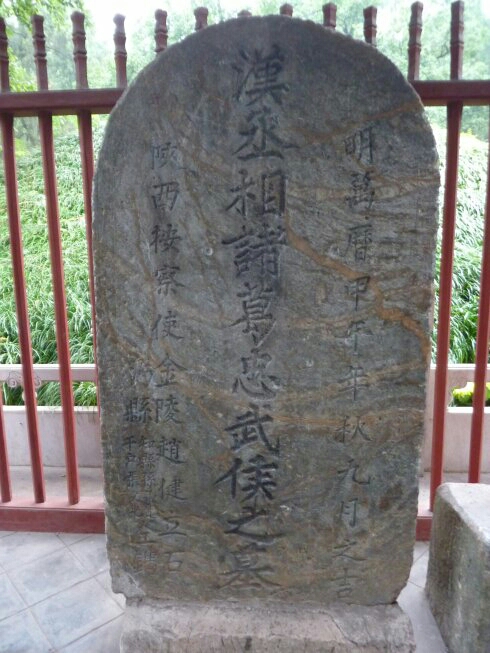 明萬曆甲午年秋九月之吉
漢丞相諸葛忠武侯之墓
陝西按察使金陵趙健立石
縣
知縣